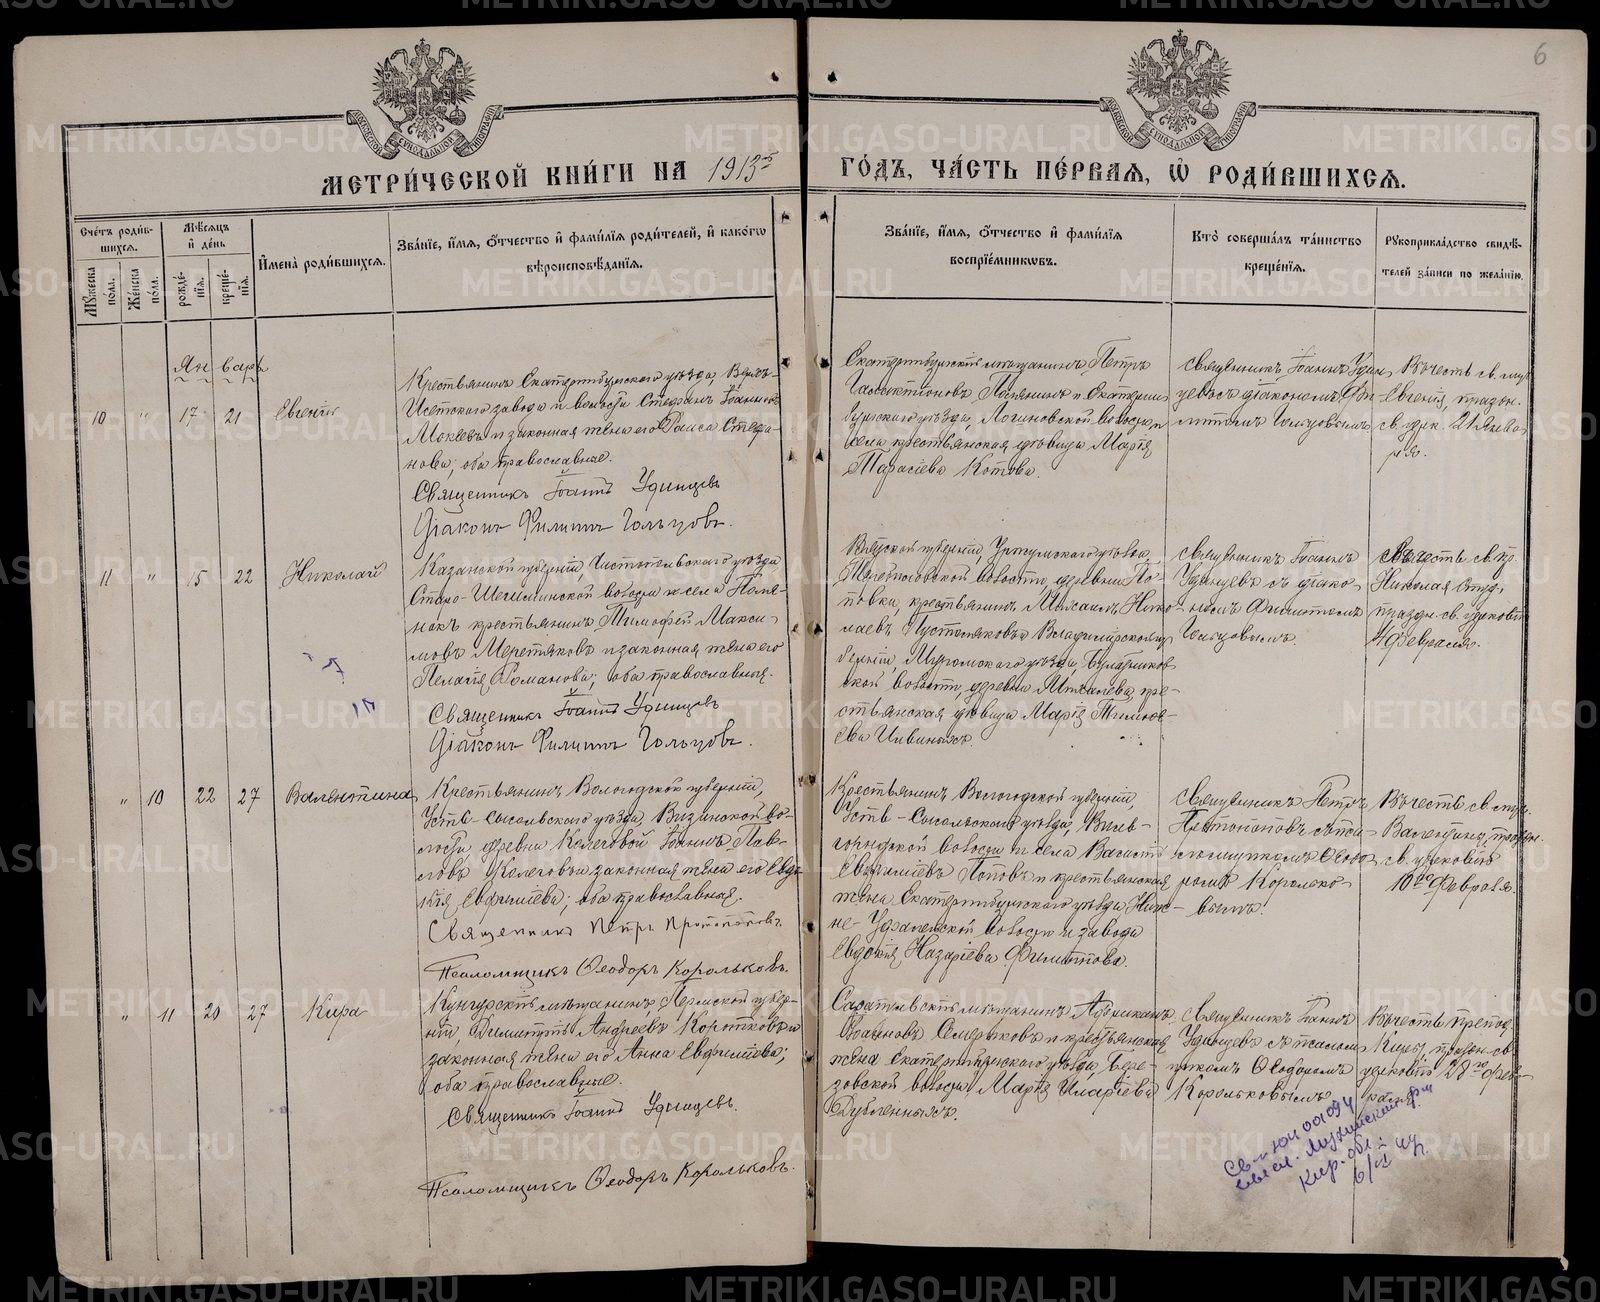 6
МЕТРИ́ЧЕСКОЙ КНИ́ГИ НА 1913й
ГО́ДЪ, ЧА́СТЬ ПЕ́РВАѦ, Ѡ҆ РОДИ́ВШИХСѦ.
Сче́тъ роди́в-
шихсѧ.
Мꙋ́жеска по́ла.
Же́нска по́ла.
Мѣ́сѧцъ
и҆ де́нь
рожде́-
нїѧ.
креще́-
нїѧ.
И҆мена̀ роди́вшихсѧ.
Зва́нїе, и҆́мѧ, ѻ҆́тчество и҆ фами́лїѧ роди́телей, и҆ како́гѡ
вѣроисповѣ́данїѧ.
Зва́нїе, и҆́мѧ, ѻ҆́тчество и҆ фами́лїѧ
воспрїе́мникѡвъ.
Кто̀ соверша́лъ та́инство
креще́нїѧ.
Рꙋкоприкла́дство свидѣ́-
телей за́писи по жела́нїю.
Январь
10 " 17 21 Евгенiй
Крестьянинъ Екатеринбургскаго уѣзда, Верхъ-
Исетскаго завода и волости Стефанъ Iоанновъ
Мокеевъ и законная жена его Раиса Стефа-
нова; оба православные.
Священникъ Iоаннъ Удинцевъ
Дiаконъ Филиппъ Гольцовъ.
Екатеринбургскiй мѣщанинъ, Петръ
и Екатерин-
бургскаго уѣзда, Логиновской волости и
села крестьянская дѣвица Марiя
Тарасiева Котова.
Священникъ Iоаннъ Удин-
цевъ съ дiакономъ Фи-
липпомъ Гольцовымъ.
Въ честь св. муч.
Евгенiя, праздн.
св. церк. 21 Янва-
ря.
11 " 15 22 Николай
Казанской губернiи, Чистопольскаго уѣзда
Старо-Шешминской волости и села
крестьянинъ Тимофей Макси-
мовъ Меретяковъ и законная жена его
Пелагiя Романова; оба православные.
Священникъ Iоаннъ Удинцевъ
Дiаконъ Филиппъ Гольцовъ.
Вятской губернiи, Уржумскаго уѣзда,
волости, деревни По-
повки, крестьянинъ Михаилъ Нико-
лаевъ Пустополяковъ и Владимiрской гу-
бернiи, Муромскаго уѣзда, Булатников-
ской волости, деревни Михалева, кре-
стьянская дѣвица Марiя Тимофе-
ева
Священникъ Iоаннъ
Удинцевъ съ дiако-
номъ Филиппомъ
Гольцовымъ.
Въ честь св. пр.
Николая Студ.
праздн. св. церковiю
4 Февраля.
" 10 22 27 Валентина
Крестьянинъ Вологодской губернiи,
Усть-Сысольскаго уѣзда, Визинской во-
лости, деревни Келеговой Iоаннъ Пав-
ловъ Колеговъ и законная жена его Евдо-
кiя Евфимiева; оба православные.
Священникъ Петръ Протопоповъ.
Псаломщикъ Ѳеодоръ Корольковъ.
Крестьянинъ Вологодской губернiи,
Усть-Сысольскаго уѣзда, Вильг-
ортской волости и села
Евфимiевъ Поповъ и крестьянская
жена Екатеринбургскаго уѣзда, Ниж-
не-Уфалейской волости и завода
Евдокiя Назарiева Филиппова.
Священникъ Петръ
Протопоповъ съ пса-
ломщикомъ Ѳеодо-
ромъ Королько-
вымъ.
Въ честь св. муч.
Валентины, праздн.
св. церковiю
10го Февраля.
" 11 20 27 Кира
Кунгурскiй мѣщанинъ, Пермской губер-
нiи, Димитрiй Андреевъ Коротковъ и
законная жена его Анна Евфимiева;
оба православные.
Священникъ Iоаннъ Удинцевъ.
Псаломщикъ Ѳеодоръ Корольковъ.
Саратовскiй мѣщанинъ,
и крестьянская
жена Екатеринбургскаго уѣзда, Бере-
зовской волости, Марiя Иларiева
Дубленныхъ.
Священникъ Iоаннъ
Удинцевъ съ псалом-
щикомъ Ѳеодоромъ
Корольковымъ.
Въ честь препод.
Киры, праздн. св.
церковiю 28го Фев-
раля.